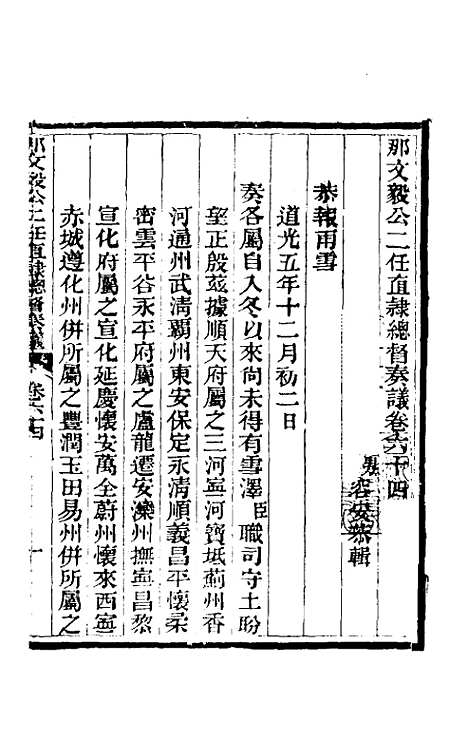 那文毅公二任直隸總督奏議卷六十四
容安恭輯
恭報雨雪
道光五年十二月初二日
奏各屬自入冬以來尚未得有雪澤臣職司守土盼
望正殷茲據順天府屬之三河寧河寶坻薊州香
河通州武淸霸州東安保定永淸順義昌平懷柔
密雲平谷永平府屬之盧龍遷安灤州撫寧昌黎
宣化府屬之宣化延慶懷安萬全蔚州懷來西寧
赤城遵化州併所屬之豐潤玉田易州併所屬之
那文毅公二任直隸總督奏議 卷六十四